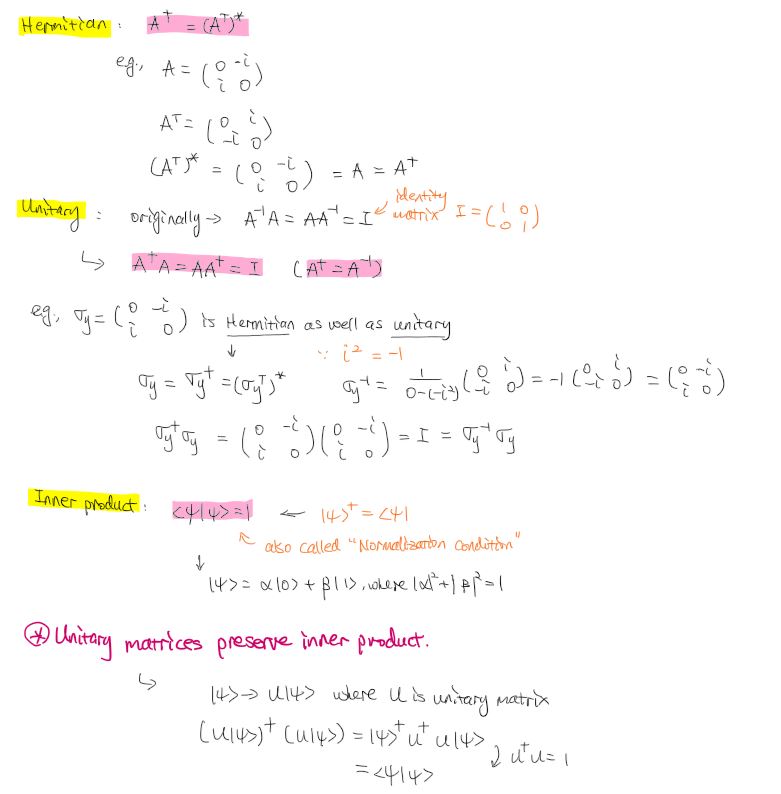 Hermitian : A† = (Aᵀ)*
eg., A = ( 0 -i
i 0 )
Aᵀ = ( 0 i
-i 0 )
(Aᵀ)* = ( 0 -i
i 0 ) = A = A†
Unitary : originally → A⁻¹A = AA⁻¹ = I ← identity matrix I = ( 1 0
0 1 )
↳ A†A = AA† = I (A† = A⁻¹)
eg., σy = ( 0 -i
i 0 ) is Hermitian as well as unitary
↓ ∵ i² = -1
σy = σy† = (σyᵀ)* σy⁻¹ = 1/(0-(-i²)) ( 0 i
-i 0 ) = -1 ( 0 i
-i 0 ) = ( 0 -i
i 0 )
σy†σy = ( 0 -i
i 0 ) ( 0 -i
i 0 ) = I = σy⁻¹σy
Inner product : <ψ|ψ> = 1 ← |ψ>† = <ψ|
also called "Normalization Condition"
↓
|ψ> = α|0> + β|1>, where |α|²+|β|² = 1
* Unitary matrices preserve inner product.
↳ |ψ> → U|ψ> where U is unitary matrix
(U|ψ>)† (U|ψ>) = |ψ>† U† U|ψ>
U†U = 1
= <ψ|ψ>